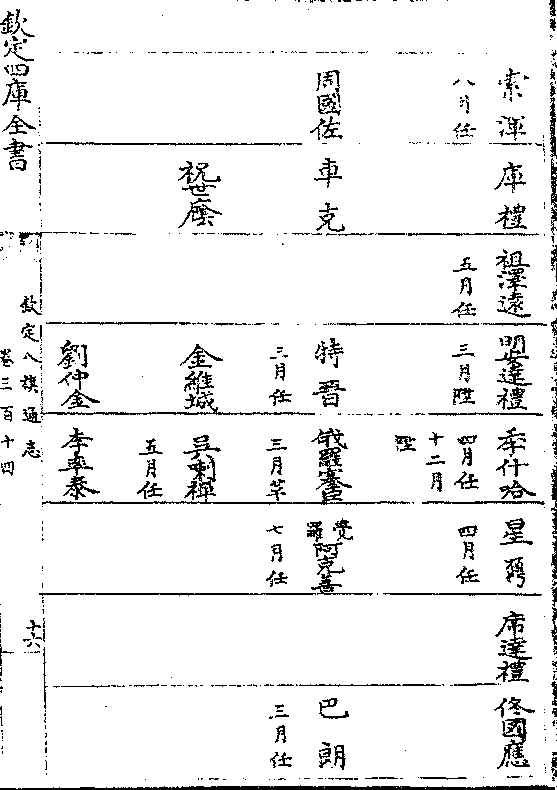 索渾 庫禮 祖澤遠 明安達禮 季什哈 星鼐 席達禮 佟國應
八月任 五月任 三月陞 四月任 四月任
十二月
陞
周國佐 車克 特晉 俄羅塞臣 覺羅阿克善 巴朗
三月任 三月革 七月任 三月任
祝世廕 金維城 吳喇禪
五月任
劉仲金 李率泰
欽定八旗通志
卷三百十四
十六
欽定四庫全書